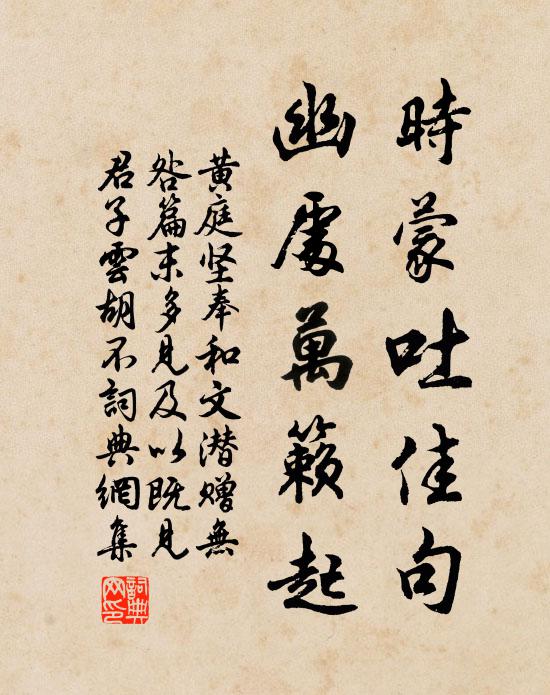 時蒙吐佳句
幽處萬籟起
黄庭坚奉和文潜赠無
咎篇末多見及以既見
君子雲胡不詞典網集
詞典網印